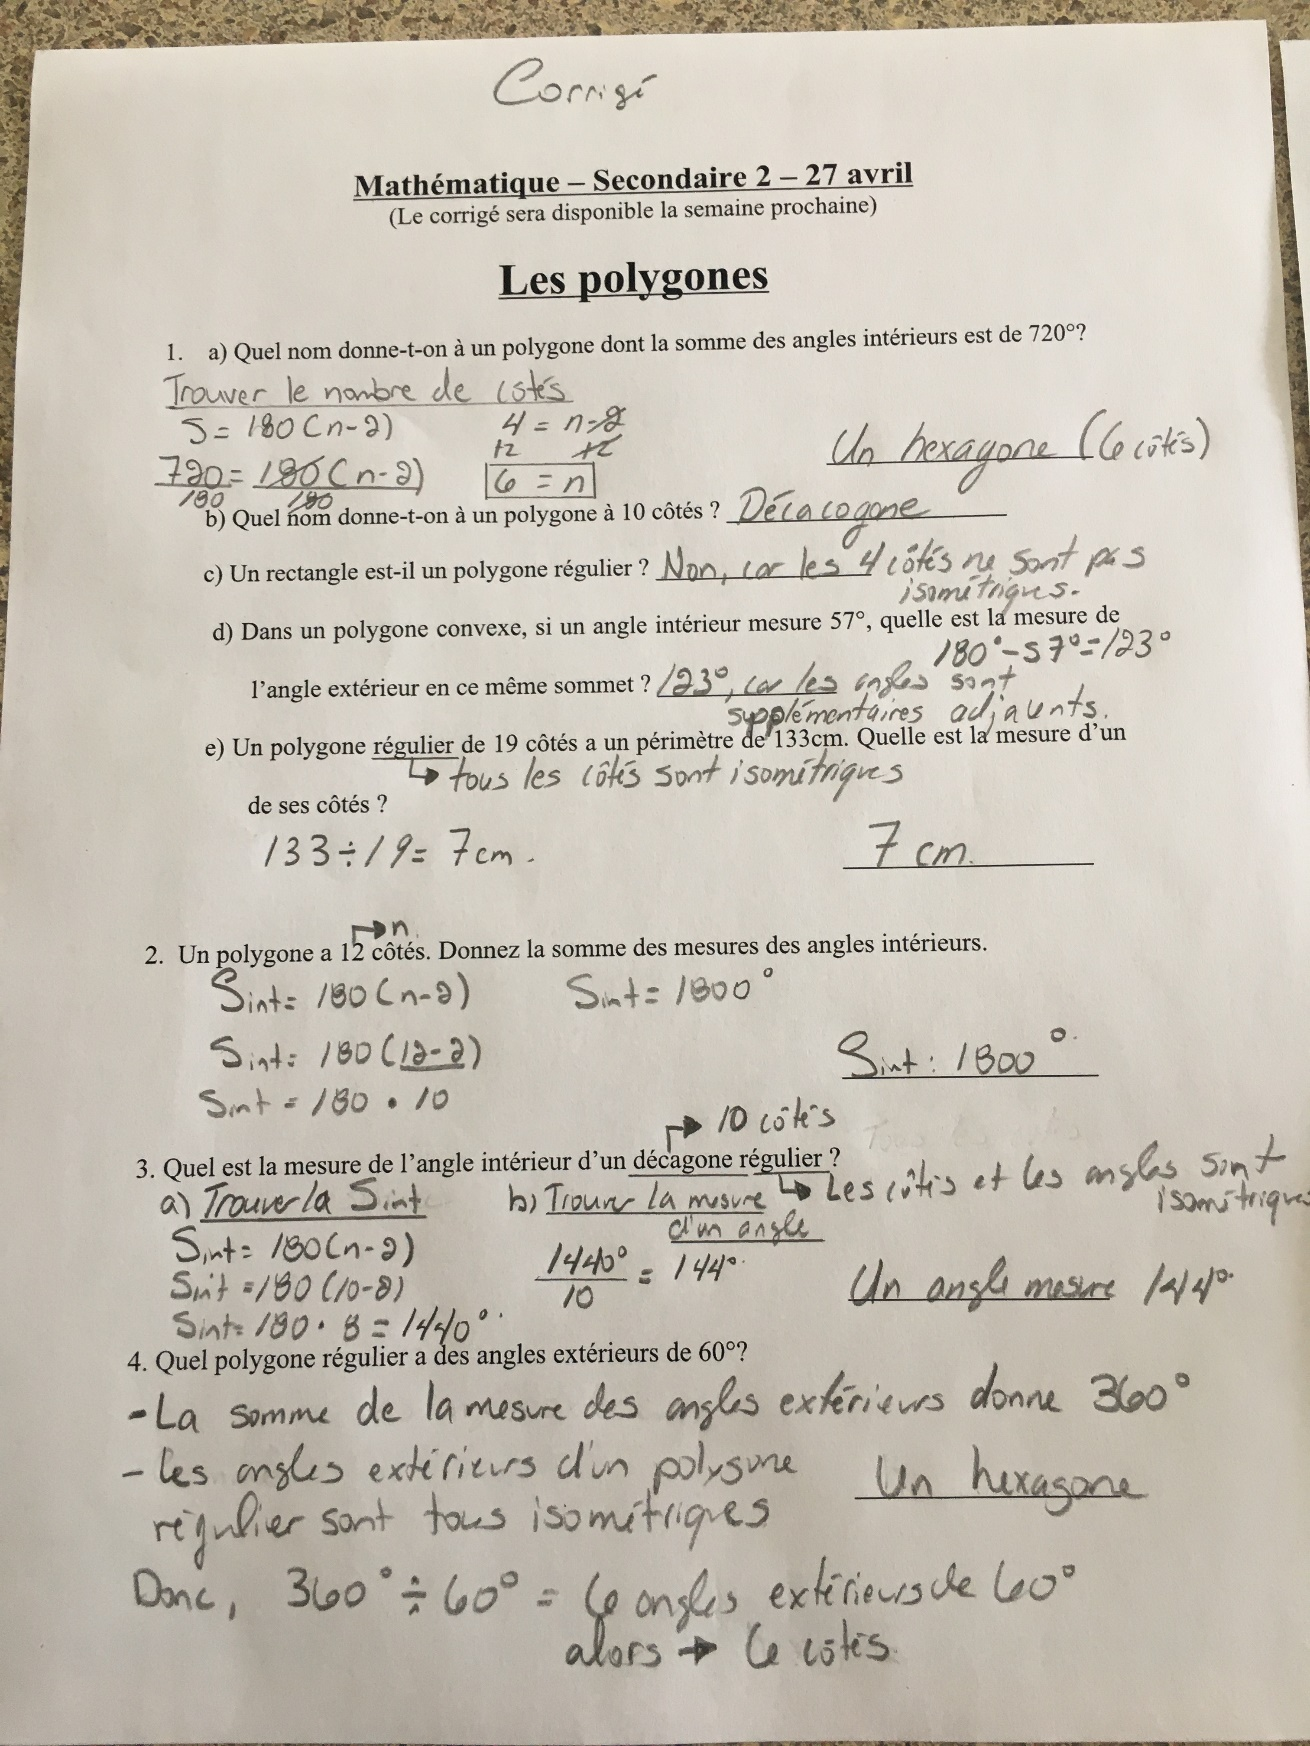 Corrigé
Mathématique – Secondaire 2 – 27 avril
(Le corrigé sera disponible la semaine prochaine)
Les polygones
1. a) Quel nom donne-t-on à un polygone dont la somme des angles intérieurs est de 720°?
Trouver le nombre de côtés
S = 180(n-2)
4 = n-2
+2 +2
Un hexagone (6 côtés)
720 = 180(n-2)
180 180
6 = n
b) Quel nom donne-t-on à un polygone à 10 côtés ? Décacogone
c) Un rectangle est-il un polygone régulier ? Non, car les 4 côtés ne sont pas
isométriques.
d) Dans un polygone convexe, si un angle intérieur mesure 57°, quelle est la mesure de
180°-57°=123°
l’angle extérieur en ce même sommet ? 123°, car les angles sont
supplémentaires adjacents.
e) Un polygone régulier de 19 côtés a un périmètre de 133cm. Quelle est la mesure d’un
↳ tous les côtés sont isométriques
de ses côtés ?
133÷19= 7cm.
7 cm.
→ n
2. Un polygone a 12 côtés. Donnez la somme des mesures des angles intérieurs.
Sint= 180(n-2)
Sint = 1800°
Sint= 180(12-2)
Sint: 1800°
Sint = 180 • 10
→ 10 côtés
3. Quel est la mesure de l’angle intérieur d’un décagone régulier ?
↳ Les côtés et les angles sont
isométriques
a) Trouver la Sint
b) Trouver la mesure
d'un angle
Sint= 180(n-2)
1440° = 144°
10
Sint =180(10-2)
Un angle mesure 144°
Sint= 180 • 8 = 1440°
4. Quel polygone régulier a des angles extérieurs de 60°?
- La somme de la mesure des angles extérieurs donne 360°
- Les angles extérieurs d'un polygone
Un hexagone
régulier sont tous isométriques
Donc, 360° ÷ 60° = 6 angles extérieurs de 60°
alors → 6 côtés